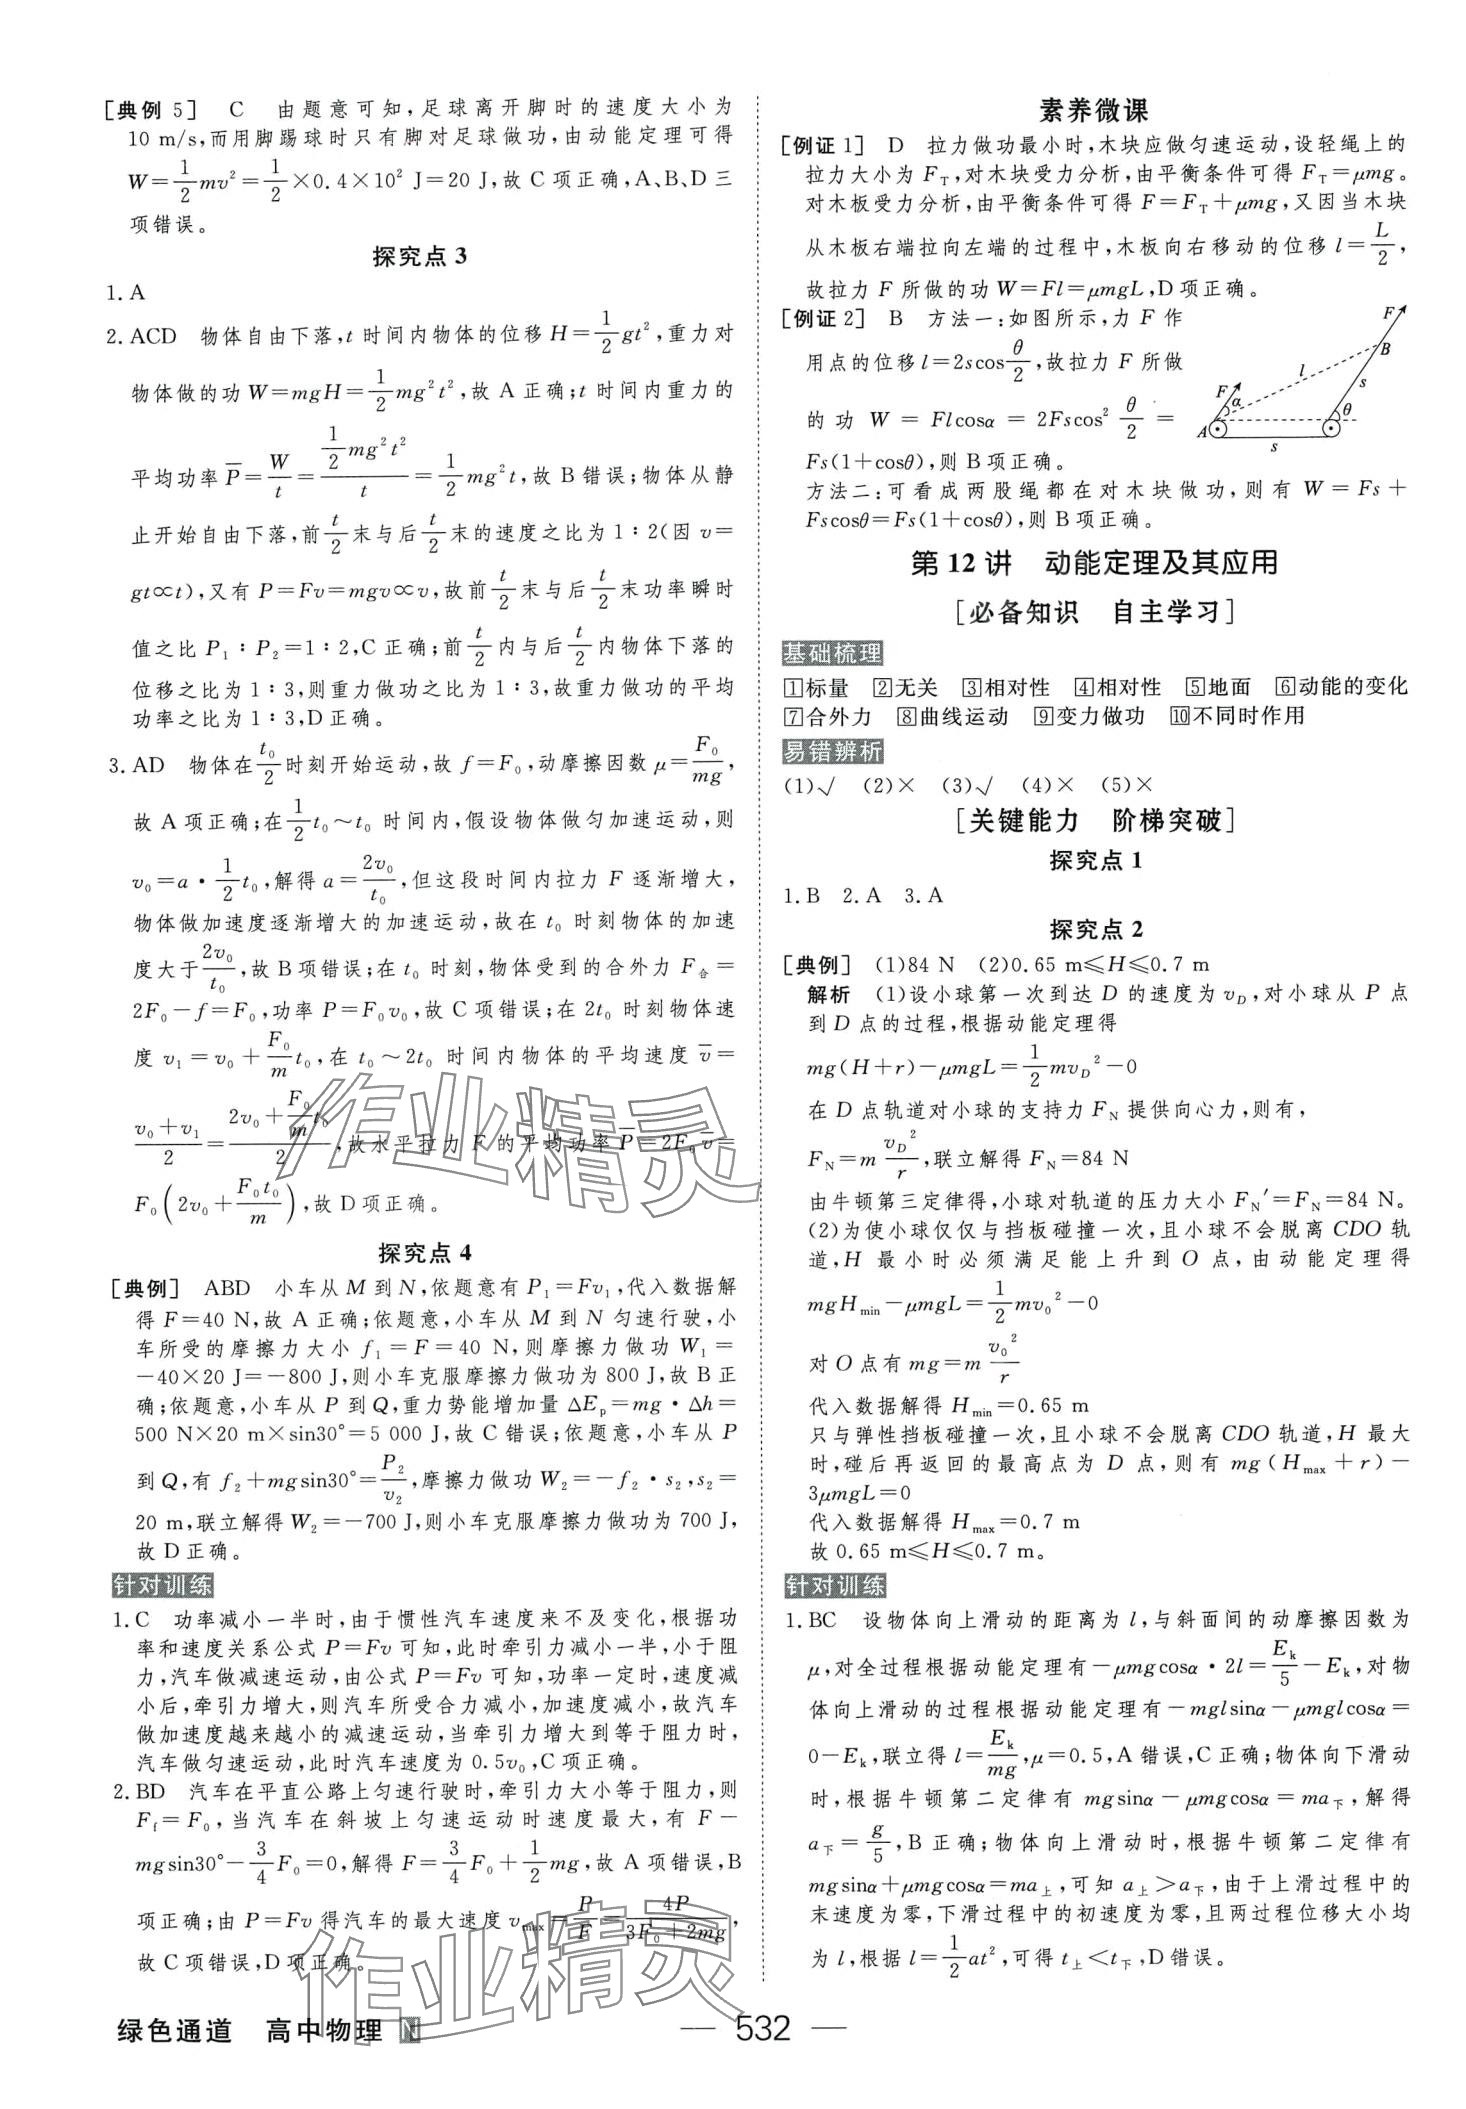 [典例5] C 由题意可知,足球离开脚时的速度大小为
10 m/s,而用脚踢球时只有脚对足球做功,由动能定理可得
W=1/2mv²=1/2×0.4×10² J=20 J,故C项正确,A、B、D三
项错误。
探究点3
1.A
2.ACD 物体自由下落,t时间内物体的位移H=1/2gt²,重力对
物体做的功W=mgH=1/2mg²t²,故A正确;t时间内重力的
平均功率P̄=W/t=(1/2mg²t²)/t=1/2mg²t,故B错误;物体从静
止开始自由下落,前t/2末与后t/2末的速度之比为1∶2(因v=
gt∝t),又有P=Fv=mgv∝v,故前t/2末与后t/2末功率瞬时
值之比P₁∶P₂=1∶2,C正确;前t/2内与后t/2内物体下落的
位移之比为1∶3,则重力做功之比为1∶3,故重力做功的平均
功率之比为1∶3,D正确。
3.AD 物体在t₀/2时刻开始运动,故f=F₀,动摩擦因数μ=F₀/mg,
故A项正确;在1/2t₀~t₀时间内,假设物体做匀加速运动,则
v₀=a·1/2t₀,解得a=2v₀/t₀,但这段时间内拉力F逐渐增大,
物体做加速度逐渐增大的加速运动,故在t₀时刻物体的加速
度大于2v₀/t₀,故B项错误;在t₀时刻,物体受到的合外力F合=
2F₀-f=F₀,功率P=F₀v₀,故C项错误;在2t₀时刻物体速
度v₁=v₀+F₀/m t₀,在t₀~2t₀时间内物体的平均速度v̄=
(v₀+v₁)/2=(2v₀+F₀/m t₀)/2,故水平拉力F的平均功率P̄=2F₀v̄=
F₀(2v₀+F₀t₀/m),故D项正确。
探究点4
[典例] ABD 小车从M到N,依题意有P₁=Fv₁,代入数据解
得F=40 N,故A正确;依题意,小车从M到N匀速行驶,小
车所受的摩擦力大小f₁=F=40 N,则摩擦力做功W₁=
-40×20 J=-800 J,则小车克服摩擦力做功为800 J,故B正
确;依题意,小车从P到Q,重力势能增加量ΔEp=mg·Δh=
500 N×20 m×sin30°=5 000 J,故C错误;依题意,小车从P
到Q,有f₂+mgsin30°=P₂/v₂,摩擦力做功W₂=-f₂·s₂,s₂=
20 m,联立解得W₂=-700 J,则小车克服摩擦力做功为700 J,
故D正确。
针对训练
1.C 功率减小一半时,由于惯性汽车速度来不及变化,根据功
率和速度关系公式P=Fv可知,此时牵引力减小一半,小于阻
力,汽车做减速运动,由公式P=Fv可知,功率一定时,速度减
小后,牵引力增大,则汽车所受合力减小,加速度减小,故汽车
做加速度越来越小的减速运动,当牵引力增大到等于阻力时,
汽车做匀速运动,此时汽车速度为0.5v₀,C项正确。
2.BD 汽车在平直公路上匀速行驶时,牵引力大小等于阻力,则
Ff=F₀,当汽车在斜坡上匀速运动时速度最大,有F-
mgsin30°-3/4F₀=0,解得F=3/4F₀+1/2mg,故A项错误,B
项正确;由P=Fv得汽车的最大速度vmax=P/F=4P/(3F₀+2mg),
故C项错误,D项正确。
素养微课
[例证1] D 拉力做功最小时,木块应做匀速运动,设轻绳上的
拉力大小为FT,对木块受力分析,由平衡条件可得FT=μmg。
对木板受力分析,由平衡条件可得F=FT+μmg,又因当木块
从木板右端拉向左端的过程中,木板向右移动的位移l=L/2,
故拉力F所做的功W=Fl=μmgL,D项正确。
[例证2] B 方法一:如图所示,力F作
用点的位移l=2scosθ/2,故拉力F所做
的功W=Flcosα=2Fscos²θ/2=
Fs(1+cosθ),则B项正确。
F B l s F α θ A s
方法二:可看成两股绳都在对木块做功,则有W=Fs+
Fscosθ=Fs(1+cosθ),则B项正确。
第12讲 动能定理及其应用
[必备知识 自主学习]
基础梳理
1标量 2无关 3相对性 4相对性 5地面 6动能的变化
7合外力 8曲线运动 9变力做功 10不同时作用
易错辨析
(1)√ (2)× (3)√ (4)× (5)×
[关键能力 阶梯突破]
探究点1
1.B 2.A 3.A
探究点2
[典例] (1)84 N (2)0.65 m≤H≤0.7 m
解析 (1)设小球第一次到达D的速度为vD,对小球从P点
到D点的过程,根据动能定理得
mg(H+r)-μmgL=1/2mvD²-0
在D点轨道对小球的支持力FN提供向心力,则有,
FN=m vD²/r,联立解得FN=84 N
由牛顿第三定律得,小球对轨道的压力大小FN′=FN=84 N。
(2)为使小球仅仅与挡板碰撞一次,且小球不会脱离CDO轨
道,H最小时必须满足能上升到O点,由动能定理得
mgHmin-μmgL=1/2mv₀²-0
对O点有mg=m v₀²/r
代入数据解得Hmin=0.65 m
只与弹性挡板碰撞一次,且小球不会脱离CDO轨道,H最大
时,碰后再返回的最高点为D点,则有mg(Hmax+r)-
3μmgL=0
代入数据解得Hmax=0.7 m
故0.65 m≤H≤0.7 m。
针对训练
1.BC 设物体向上滑动的距离为l,与斜面间的动摩擦因数为
μ,对全过程根据动能定理有-μmgcosα·2l=Ek/5-Ek,对物
体向上滑动的过程根据动能定理有-mglsinα-μmglcosα=
0-Ek,联立得l=Ek/mg,μ=0.5,A错误,C正确;物体向下滑动
时,根据牛顿第二定律有mgsinα-μmgcosα=ma下,解得
a下=g/5,B正确;物体向上滑动时,根据牛顿第二定律有
mgsinα+μmgcosα=ma上,可知a上>a下,由于上滑过程中的
末速度为零,下滑过程中的初速度为零,且两过程位移大小均
为l,根据l=1/2at²,可得t上<t下,D错误。
作业精灵
作业精灵
绿色通道 高中物理 N
— 532 —